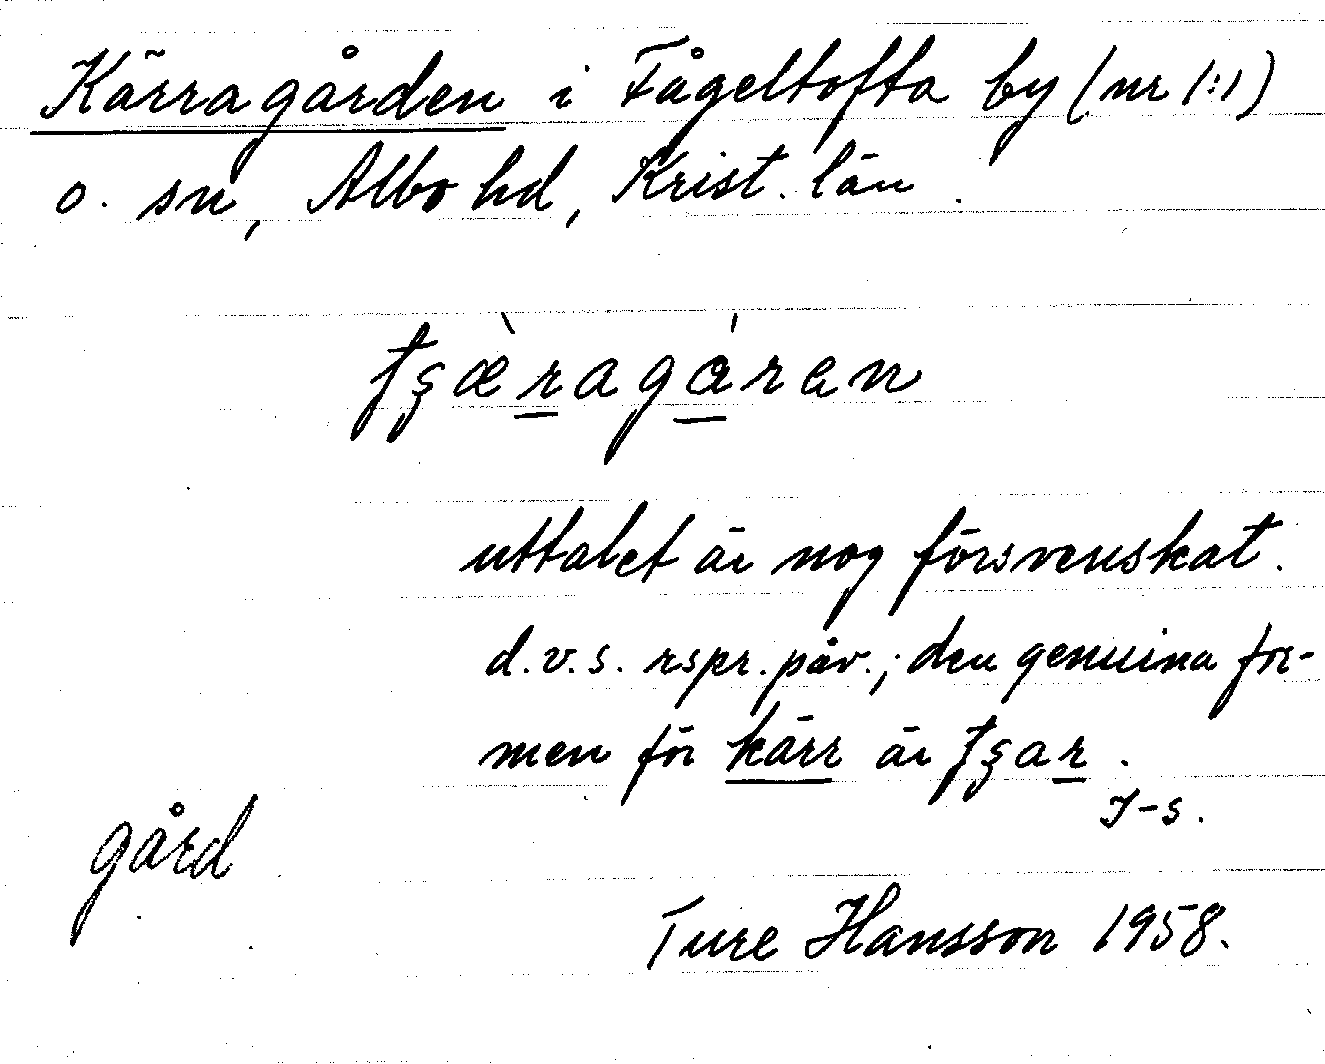 Kärragården i Fågeltofta by (nr 1:1)
o. sn, Albo hd, Krist. län.
tʂæ̀ragáran
uttalet är nog försvenskat.
d.v.s. rspr. påv.; den genuina for-
men för kärr är tʂar.
I-s.
gård
Ture Hansson 1958.